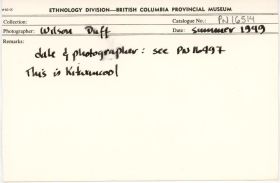 ETHNOLOGY DIVISION—BRITISH COLUMBIA PROVINCIAL MUSEUM
Collection: Catalogue No.: PN 16514
Photographer: Wilson Duff Date: summer 1949
Remarks:
date & photographer: see PN 16497
This is Kitwancool